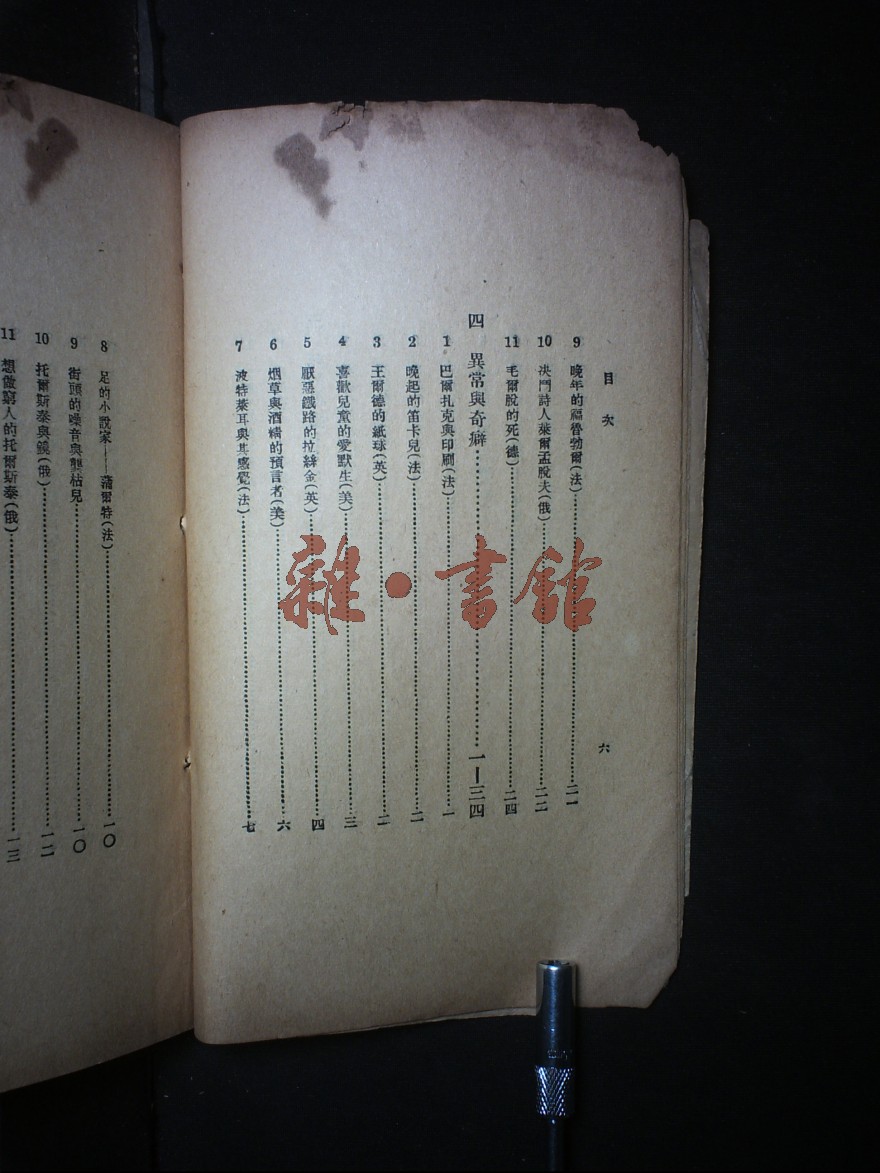 目次
六
9 晚年的福魯勃爾(法)…………二一
10 决鬥詩人萊爾孟脫夫(俄)…………二二
11 毛爾脫的死(德)…………二四
四 異常與奇癖…………一—三四
1 巴爾扎克與印刷(法)…………一
2 晚起的笛卡兒(法)…………二
3 王爾德的紙球(英)…………二
4 喜歡兒童的愛默生(美)…………三
5 厭惡鐵路的拉絲金(英)…………四
6 烟草與酒精的預言者(美)…………六
7 波特萊耳與其感覺(法)…………七
8 足的小說家——蒲爾特(法)…………一〇
9 街頭的噪音與龔枯兒…………一〇
10 托爾斯泰與鏡(俄)…………一二
11 想做窮人的托爾斯泰(俄)…………一三
雜·書館